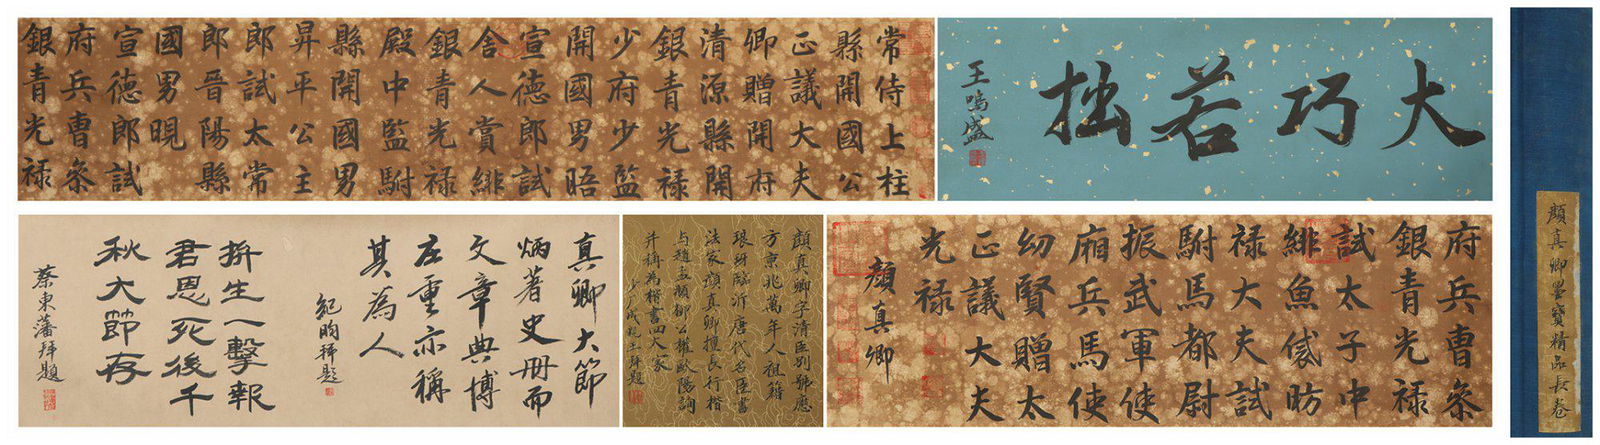 顏真卿墨寶精品長卷
大巧若拙
王鳴盛
常侍上柱
縣開國公
正議大夫
卿贈開府
清源縣開
銀青光祿
少府少監
開國男晤
宣德郎試
舍人賞緋
銀青光祿
殿中監駙
縣開國男
昇平公主
郎試太常
郎晉陽縣
國男晛
宣德郎試
府兵曹叅
銀青光祿
府兵曹叅
銀青光祿
試太子中
緋魚袋昉
祿大夫試
駙馬都尉
振武軍使
廂兵馬使
幼賢贈太
正議大夫
光祿
顏真卿
顏真卿字清臣別號應
方京兆萬年人祖籍
琅玡臨沂唐代名臣書
法家顏真卿擅長行楷
与趙孟頫柳公權歐陽詢
并稱為楷書四大家
拜題
真卿大節
炳著史冊而
文章典博
庄重亦稱
其為人
紀昀拜題
拚生一擊報
君恩死後千
秋大節存
蔡東藩拜題